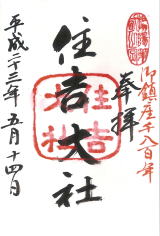 御鎮座千八百年
奉拝
住吉大社
平成二十三年五月十四日